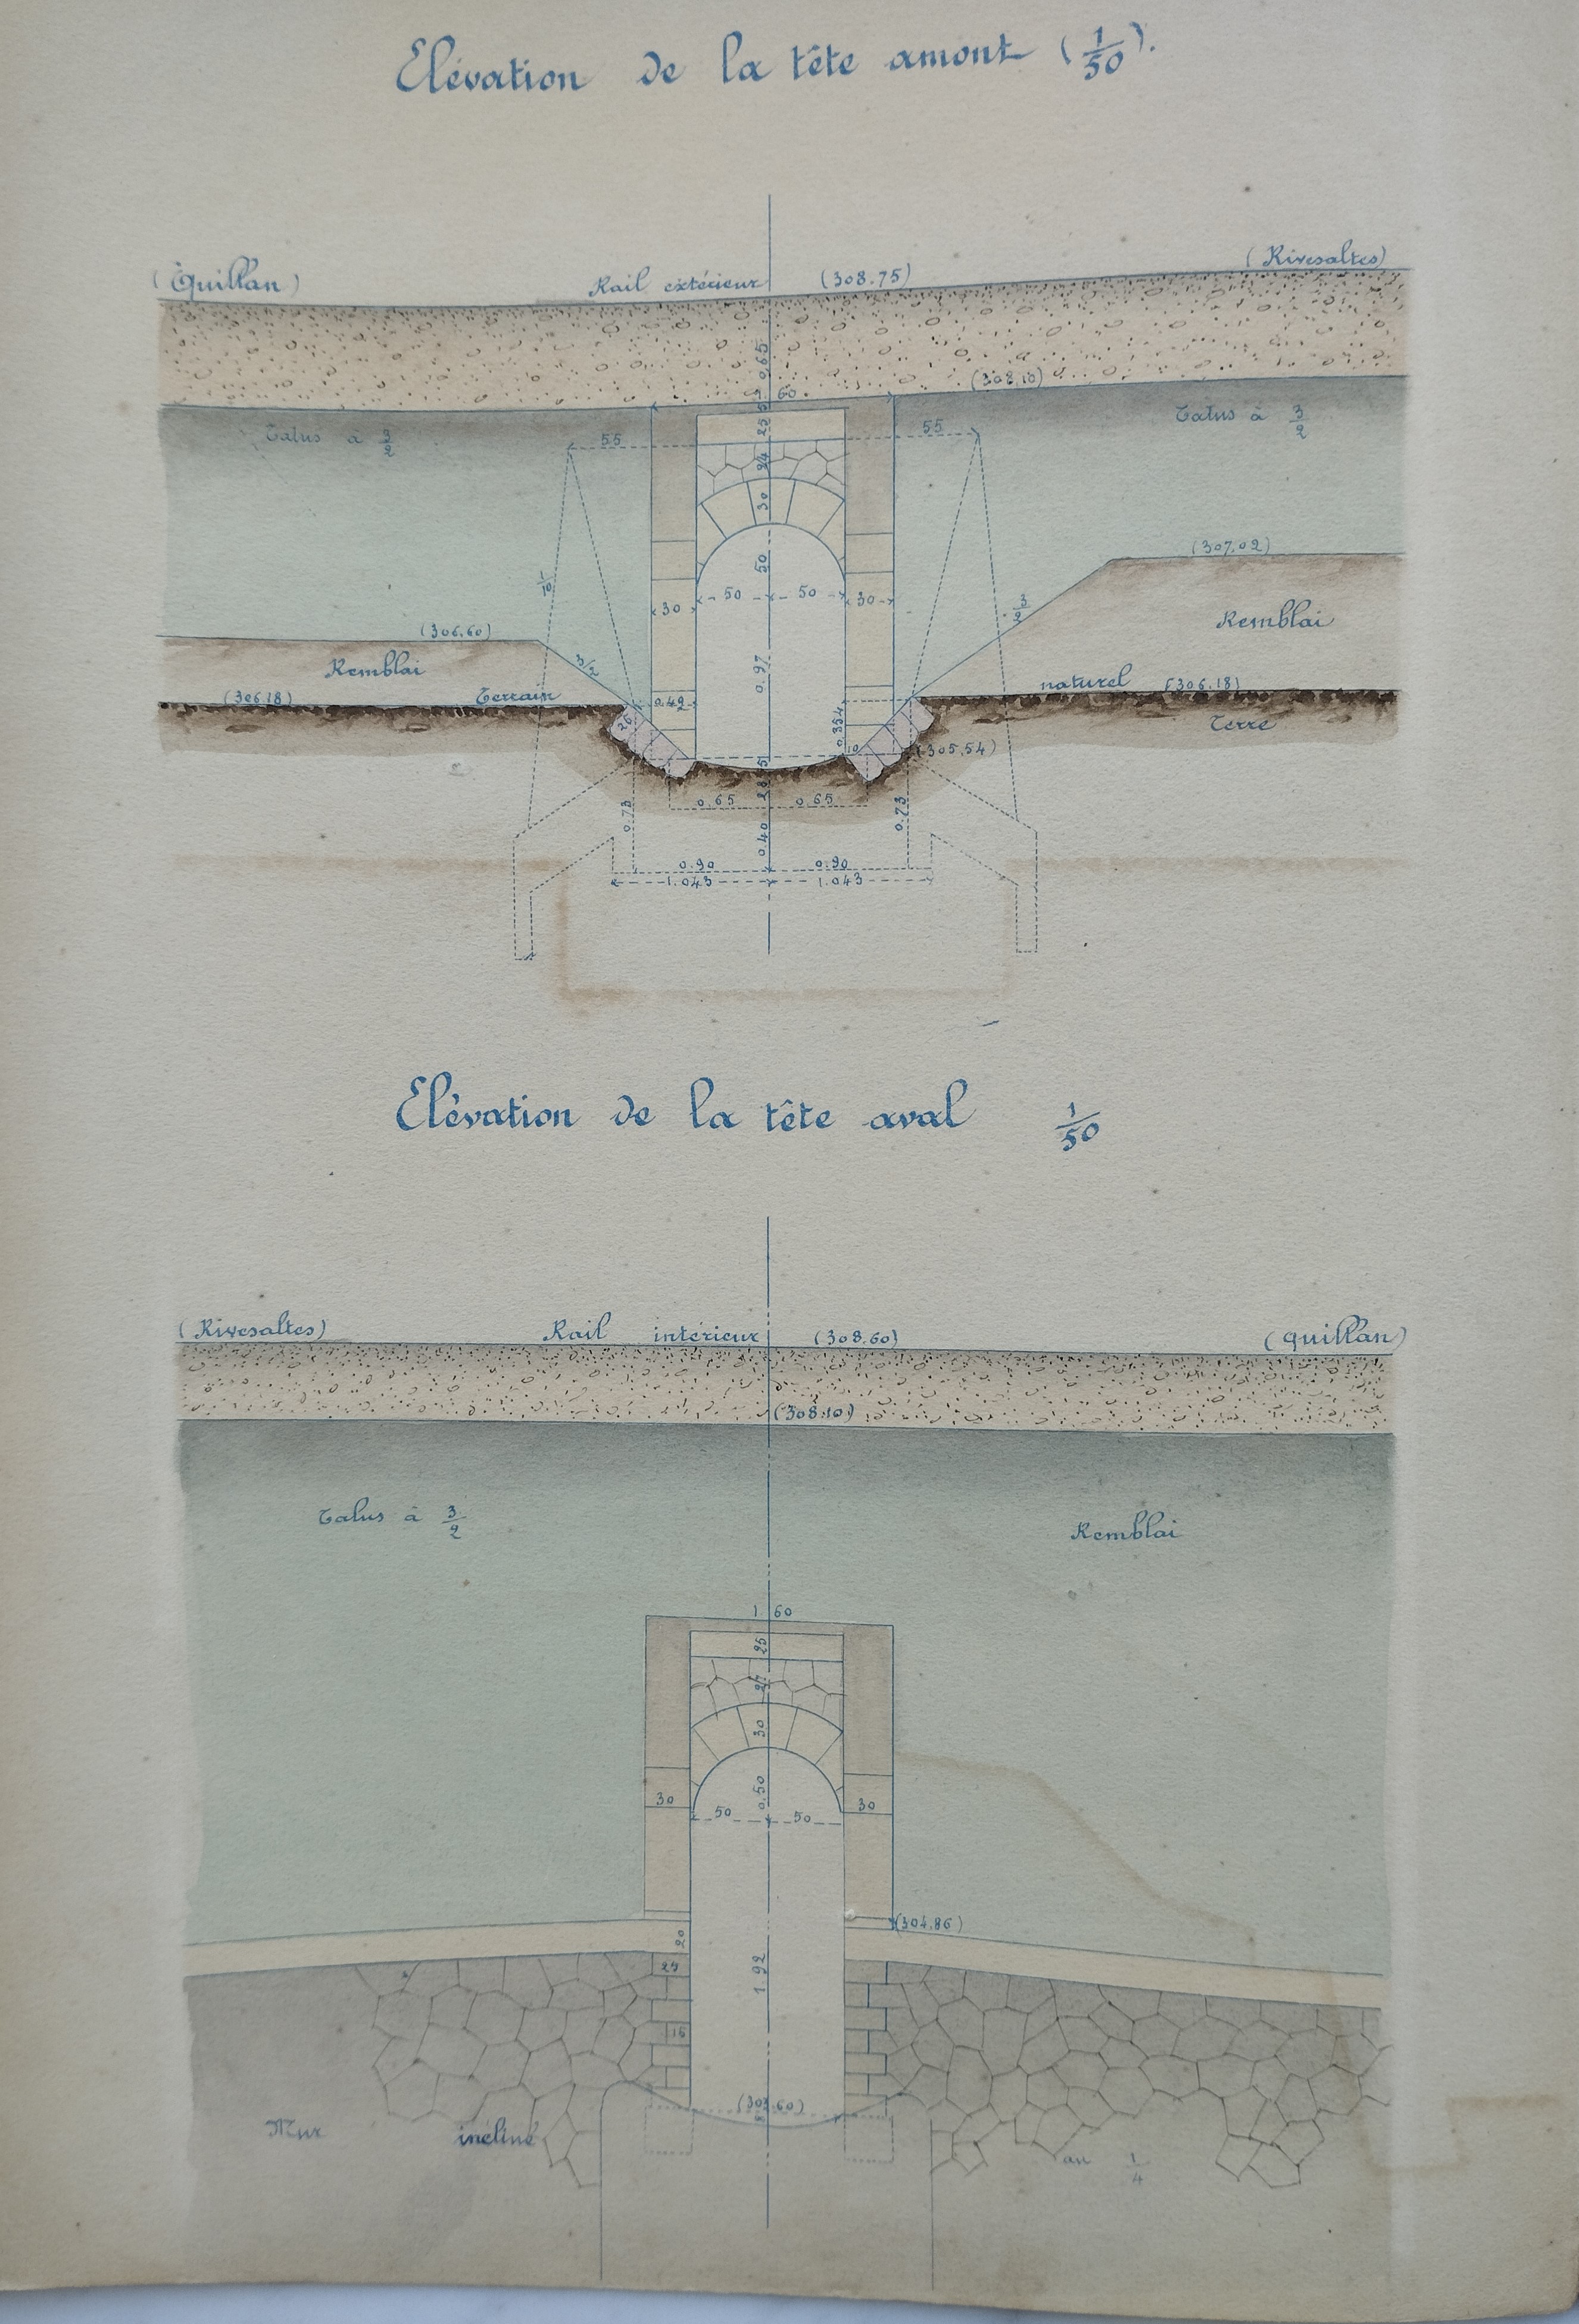 Elévation de la tête amont (1/50).
(Quillan) Rail extérieur (308.75) (Rivesaltes)
0,65
(308.10)
60
Talus à 3/2
Talus à 3/2
55 25 55
24
30
(307.02)
1/10
50
50 50
30 30
3/2
Remblai
(306.60)
Remblai
3/2
0.97
(306.18) Terrain naturel (306.18)
0.42
26
0.354
Terre
10
(305.54)
0.65 0.65
0.73 0.73
0.40
0.90 0.90
1.043 1.043
Elévation de la tête aval 1/50
(Rivesaltes) Rail intérieur (308.60) (Quillan)
(308.10)
Talus à 3/2
Remblai
1.60
25
30
0.50
30 30
50 50
(304.86)
20
1.92
16
(303.60)
Mur incliné au 1/4